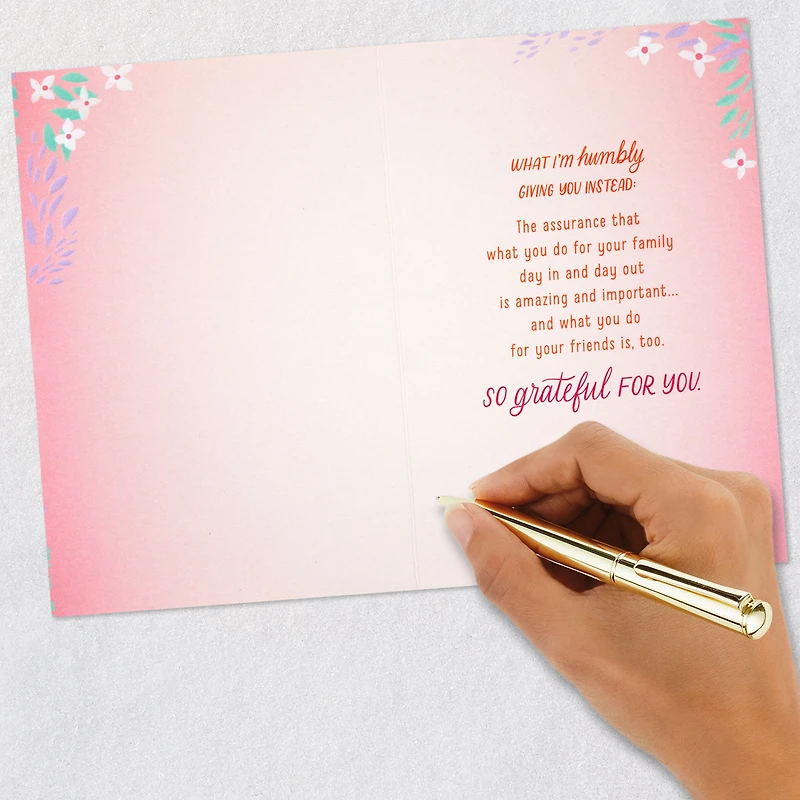 WHAT I'M humbly
GIVING YOU INSTEAD:
The assurance that
what you do for your family
day in and day out
is amazing and important...
and what you do
for your friends is, too.
SO grateful FOR YOU.